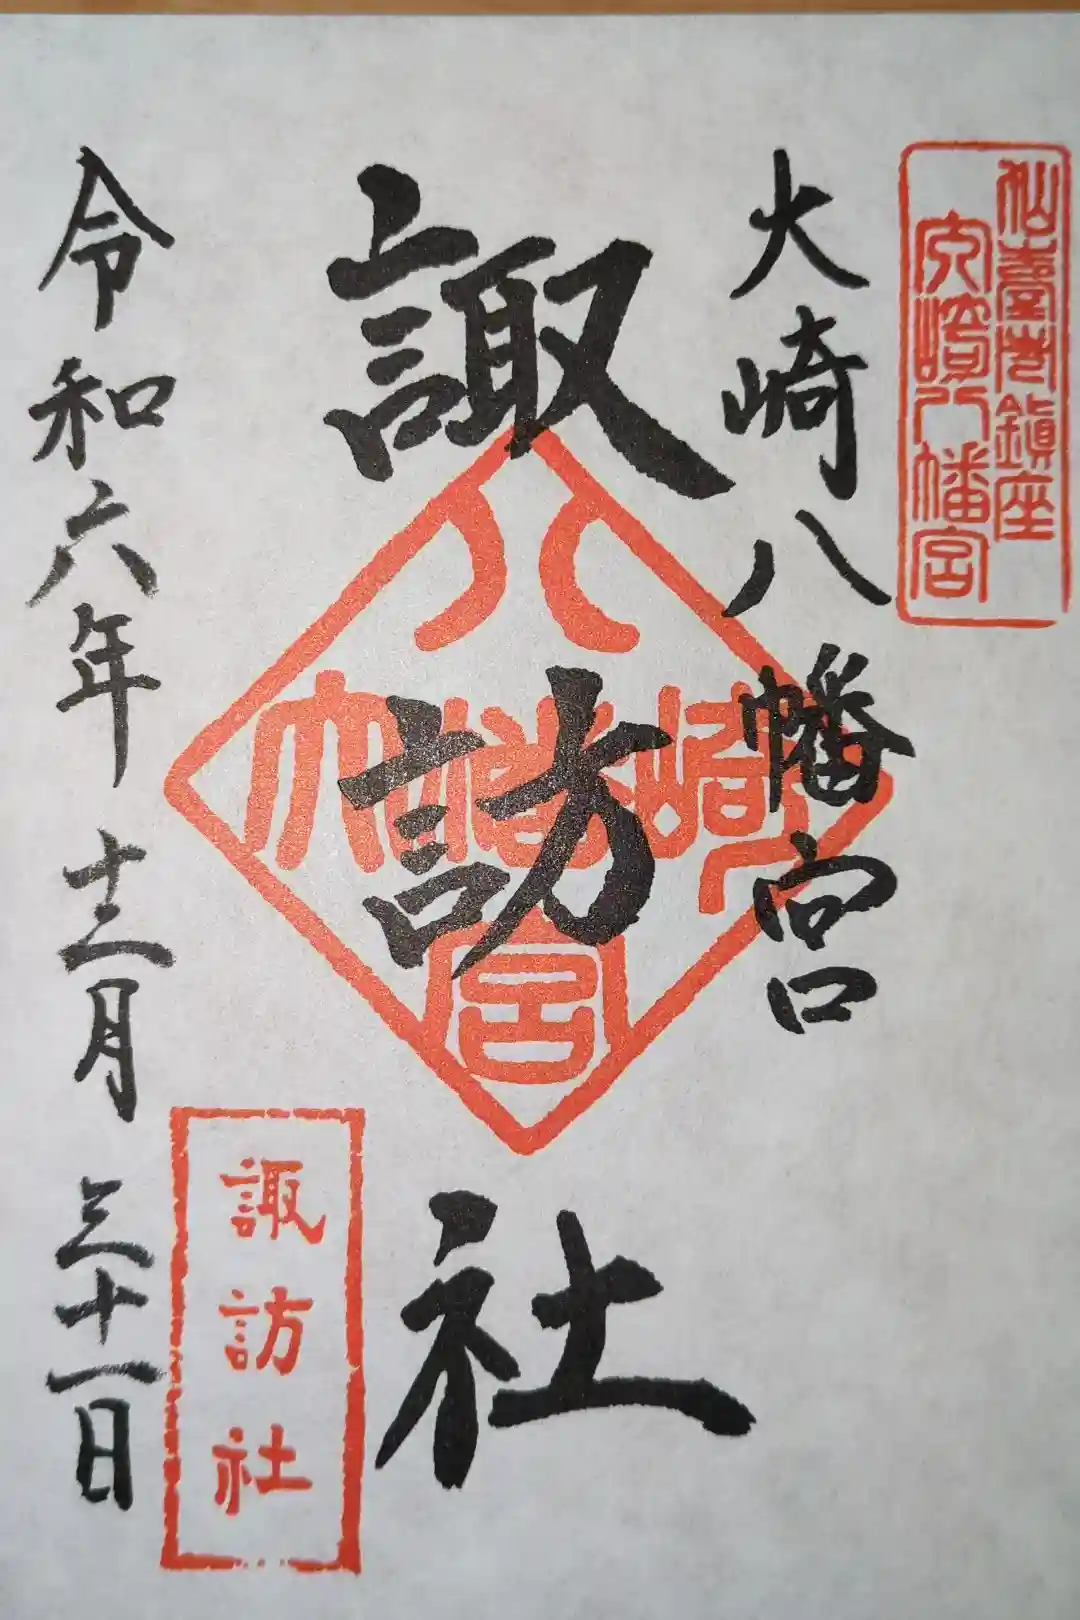 仙臺市鎮座
大崎八幡宮
大崎八幡宮
諏訪社
大崎八幡宮
諏訪社
令和六年十二月三十一日